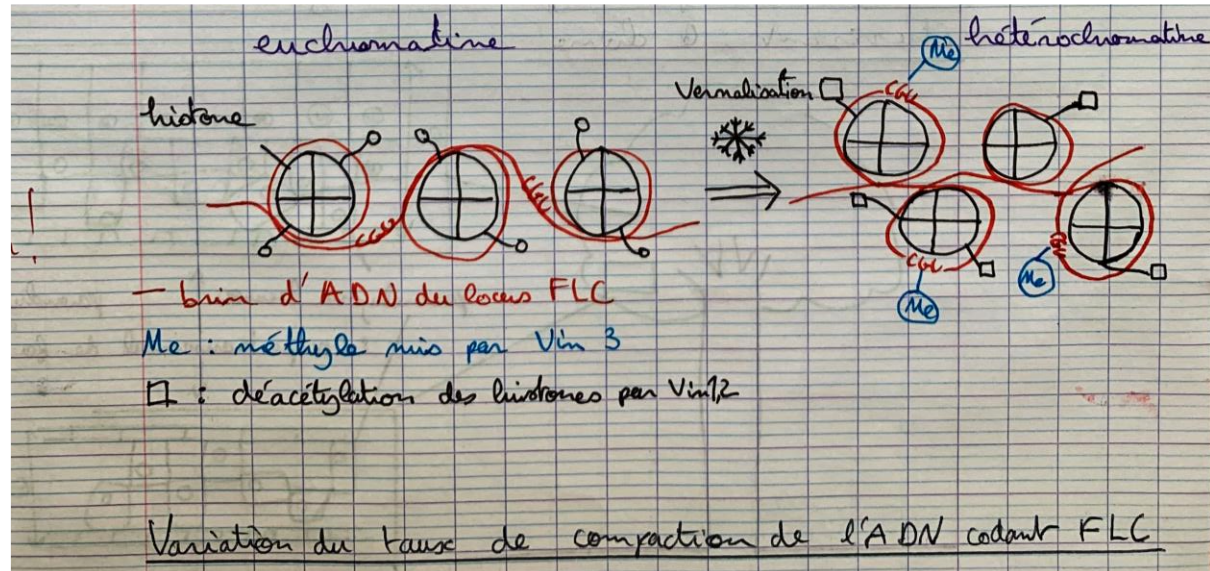 euchromatine
hétérochromatine
histone
Vernalisation
Me
CGG
Me
Me
— brin d'ADN du locus FLC
Me : méthyle mis par Vin 3
□ : déacétylation des histones par Vin1,2
Variation du taux de compaction de l'ADN codant FLC